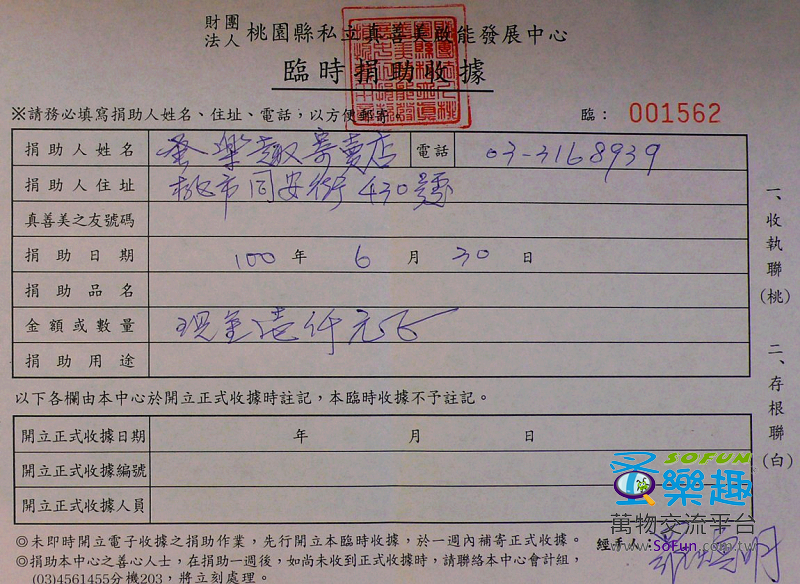 財團法人 桃園縣私立真善美啟能發展中心
臨時捐助收據
※請務必填寫捐助人姓名、住址、電話，以方便郵寄。 臨： 001562
捐助人姓名 圣樂趣寄賣店 電話 03-3168939
捐助人住址 桃市同安街430號
真善美之友號碼
捐助日期 100 年 6 月 30 日
捐助品名
金額或數量 現金壹仟元
捐助用途
一、收執聯(桃) 二、存根聯(白)
以下各欄由本中心於開立正式收據時註記，本臨時收據不予註記。
開立正式收據日期 年 月 日
開立正式收據編號
開立正式收據人員
◎未即時開立電子收據之捐助作業，先行開立本臨時收據，於一週內補寄正式收據。 經手人：
◎捐助本中心之善心人士，在捐助一週後，如尚未收到正式收據時，請聯絡本中心會計組，
(03)4561455分機203，將立刻處理。
SOFUN
圣樂趣
萬物交流平台
www.SoFun.com.tw